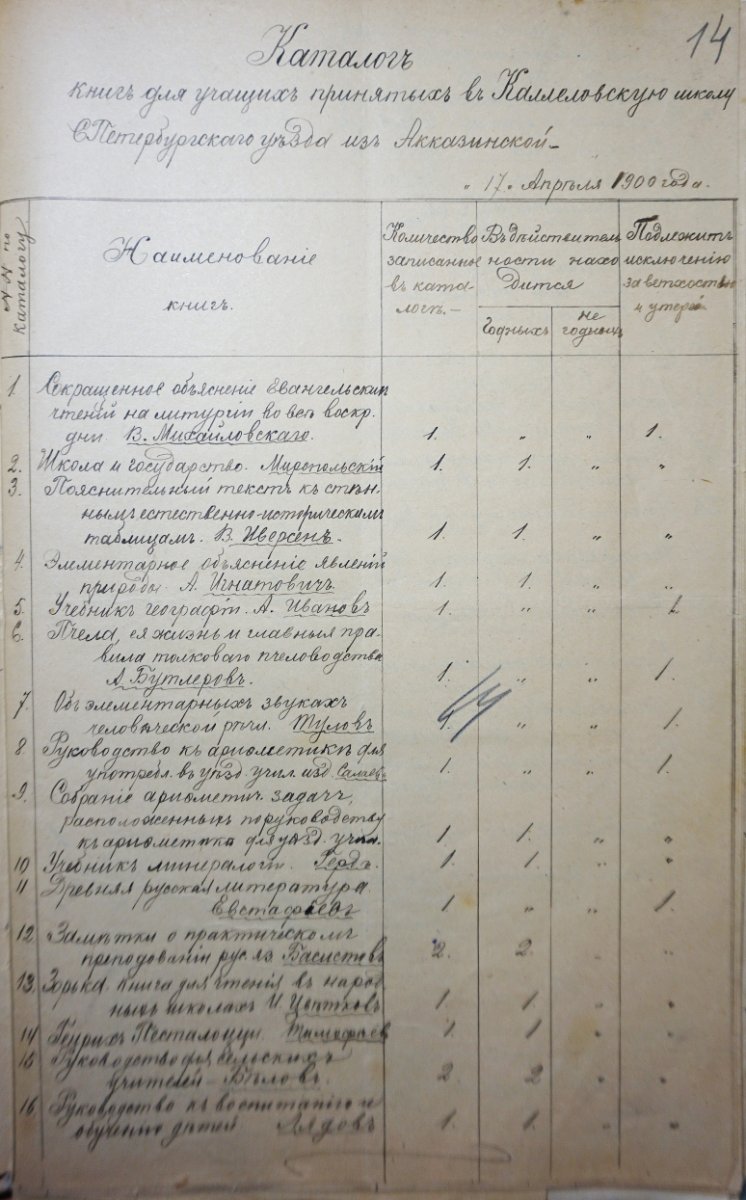 14
Каталогъ
книгъ для учащихъ принятыхъ въ Каллеловскую школу
СПетербургскаго уѣзда изъ Акказинской
"17" Апрѣля 1900 года.
№№ по каталогу
Наименованіе
книгъ.
Количество записанное въ ката-логъ.
Въ дѣйствительности нахо-дится
Годныхъ
не годныхъ
Подлежитъ исключенію за ветхостью и утерей
1 Сокращенное объясненіе Евангельских
чтеній на литургіи во всѣ воскр.
дни В. Михайловскаго. 1. " " 1.
2. Школа и государство. Миропольскій 1. 1. " "
3. Пояснительный текстъ къ стѣн-
нымъ естественно-историческимъ
таблицамъ. В. Иверсенъ. 1. 1. " "
4. Элементарное объясненіе явленій
природы А. Игнатовичъ 1. 1. " "
5. Учебникъ географіи. А. Ивановъ 1. " "
6. Пчела, ея жизнь и главныя пра-
вила толковаго пчеловодства
А. Бутлеровъ. 1. " " 1.
7. Объ элементарныхъ звукахъ
человѣческой рѣчи. Туловъ 1. " " 1.
8. Руководство къ ариѳметикѣ для
употребл. въ уѣзд. учил. изд. Салаевъ 1. " " 1.
9. Собраніе ариѳметич. задачъ,
расположенныхъ по руководству
къ ариѳметикѣ для уѣзд. учил. 1. 1. " "
10 Учебникъ минералогіи. Гердъ. 1. 1. " "
11 Древняя русская литература
Евстафьевъ 1. " " 1.
12. Замѣтки о практическомъ
преподаваніи рус. яз. Басистовъ 2. 2. " "
13. Зорька. Книга для чтенія въ народ-
ныхъ школахъ И. Цвѣтковъ 1. 1. " "
14 Генрихъ Песталоцци. Тимофѣев 1. 1 " "
15 Руководство для сельскихъ
учителей – Бѣловъ. 2 2 " "
16. Руководство къ воспитанію и
обученію дѣтей Лядовъ 1. 1. " "